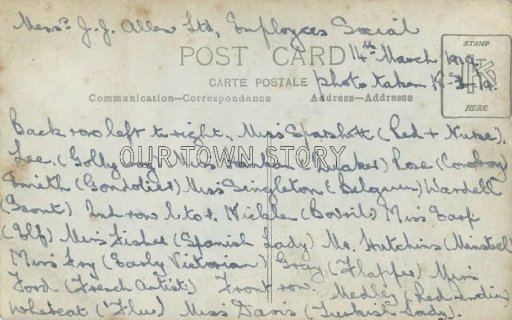 Messrs J. J. Allen Ltd, Employees Social
POST CARD
14th March 1919.
STAMP
HERE
CARTE POSTALE
photo taken 18-3-19
Communication—Correspondence Address—Adresse
Back row left to right. Miss Sparshott (Red + Nurse).
Lee. (Golly wog) Miss (Quaker) Rose (Cowboy)
OUR TOWN STORY
Smith (Gondolier) Miss Singleton (Belgium) Wardell
(Scout) 2nd row l. to r. Hickle (Bovril) Miss Earp
(Elf) Miss Fisher (Spanish Lady) Mr. Hutchins (Minstrel)
Miss Fry (Early Victorian) Gray (Flapper) Miss
Ford (French Artist) Front row: Medley (Red Indian)
Wheleat ('Flue) Miss Davis (Turkish Lady).